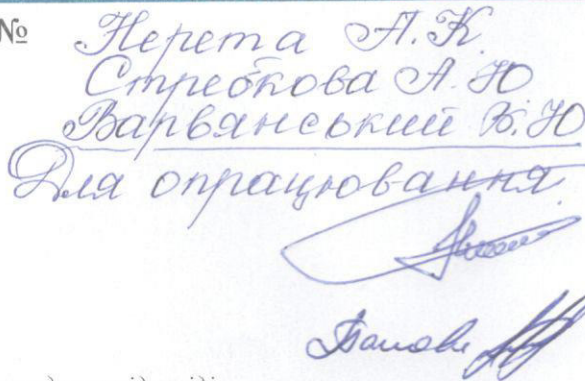 №
Нерета А.К.
Стребкова А.Ю
Варвянський В.Ю
Для опрацювання